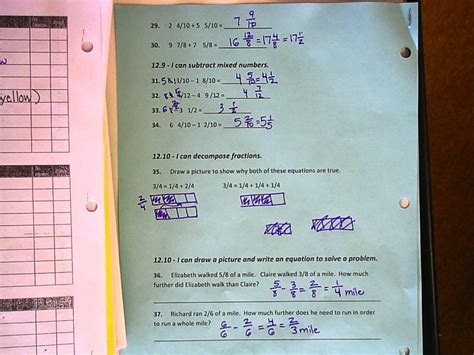 29. 2 4/10 + 5 5/10 = 7 9/10
30. 9 7/8 + 7 5/8 = 16 12/8 = 17 4/8 = 17 1/2
12.9 - I can subtract mixed numbers.
31. 5 /10 - 1 8/10 = 4 5/10 = 4 1/2
32. /12 - 4 9/12 = 4 /12
33. 3 1/2 = 3
34. 6 4/10 - 1 2/10 = 5 2/10 = 5 1/5
12.10 - I can decompose fractions.
35. Draw a picture to show why both of these equations are true.
3/4 = 1/4 + 2/4 3/4 = 1/4 + 1/4 + 1/4
12.10 - I can draw a picture and write an equation to solve a problem.
36. Elizabeth walked 5/8 of a mile. Claire walked 3/8 of a mile. How much
further did Elizabeth walk than Claire? 5/8 - 3/8 = 2/8 = 1/4 mile
37. Richard ran 2/6 of a mile. How much further does he need to run in order
to run a whole mile? 6/6 - 2/6 = 4/6 = 2/3 mile
yellow)